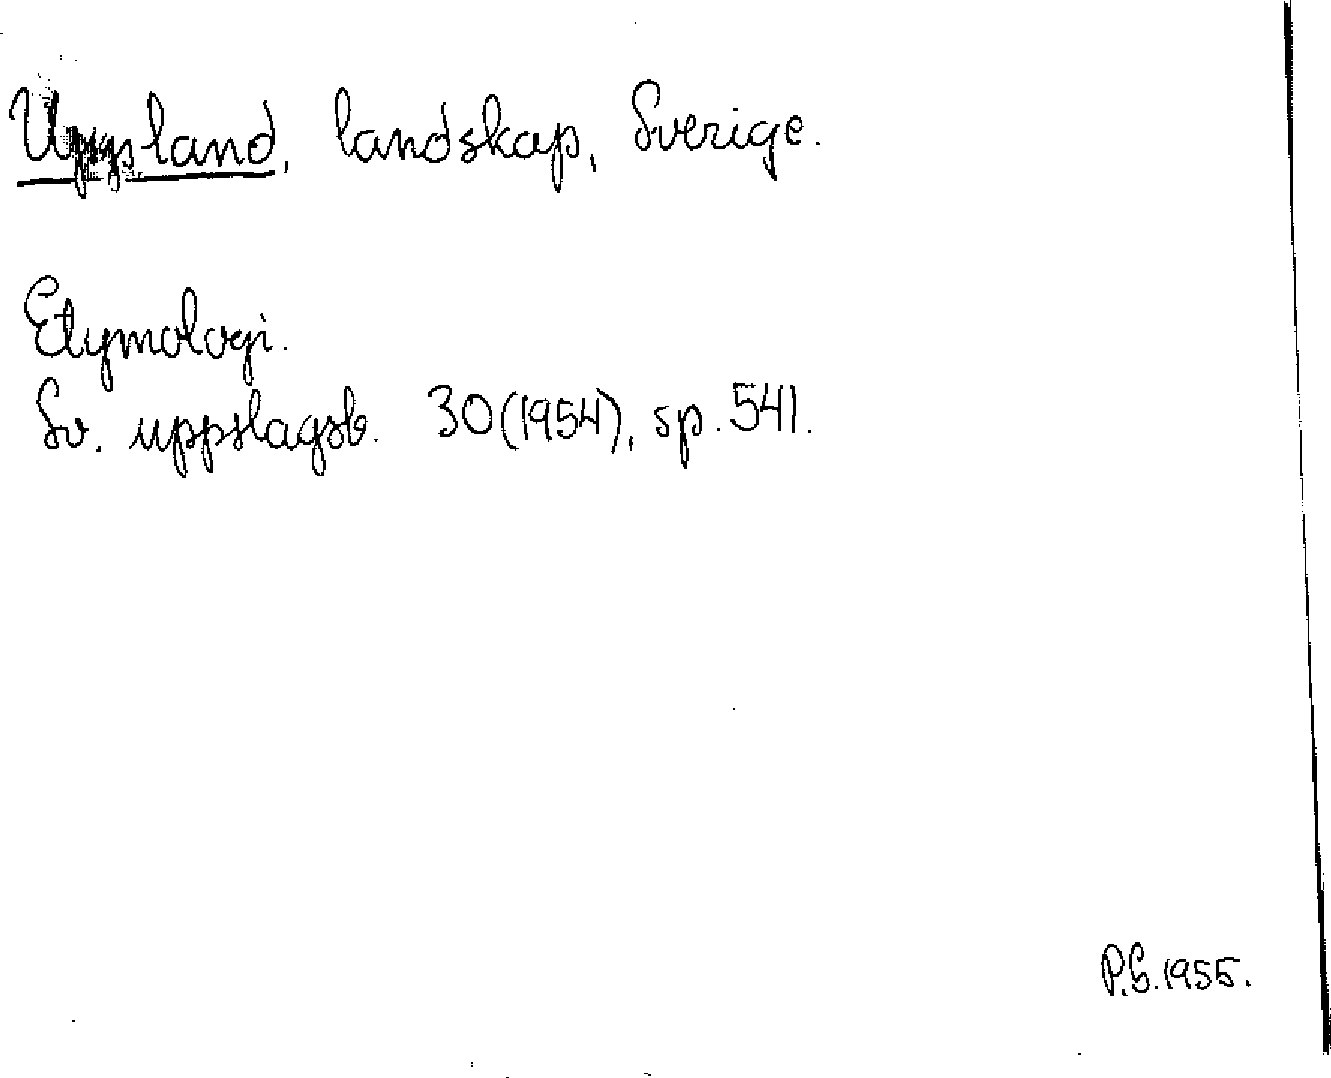 Uppland, landskap, Sverige.
Etymologi.
Sv. uppslagsb. 30(1954), sp. 541.
P.G. 1955.